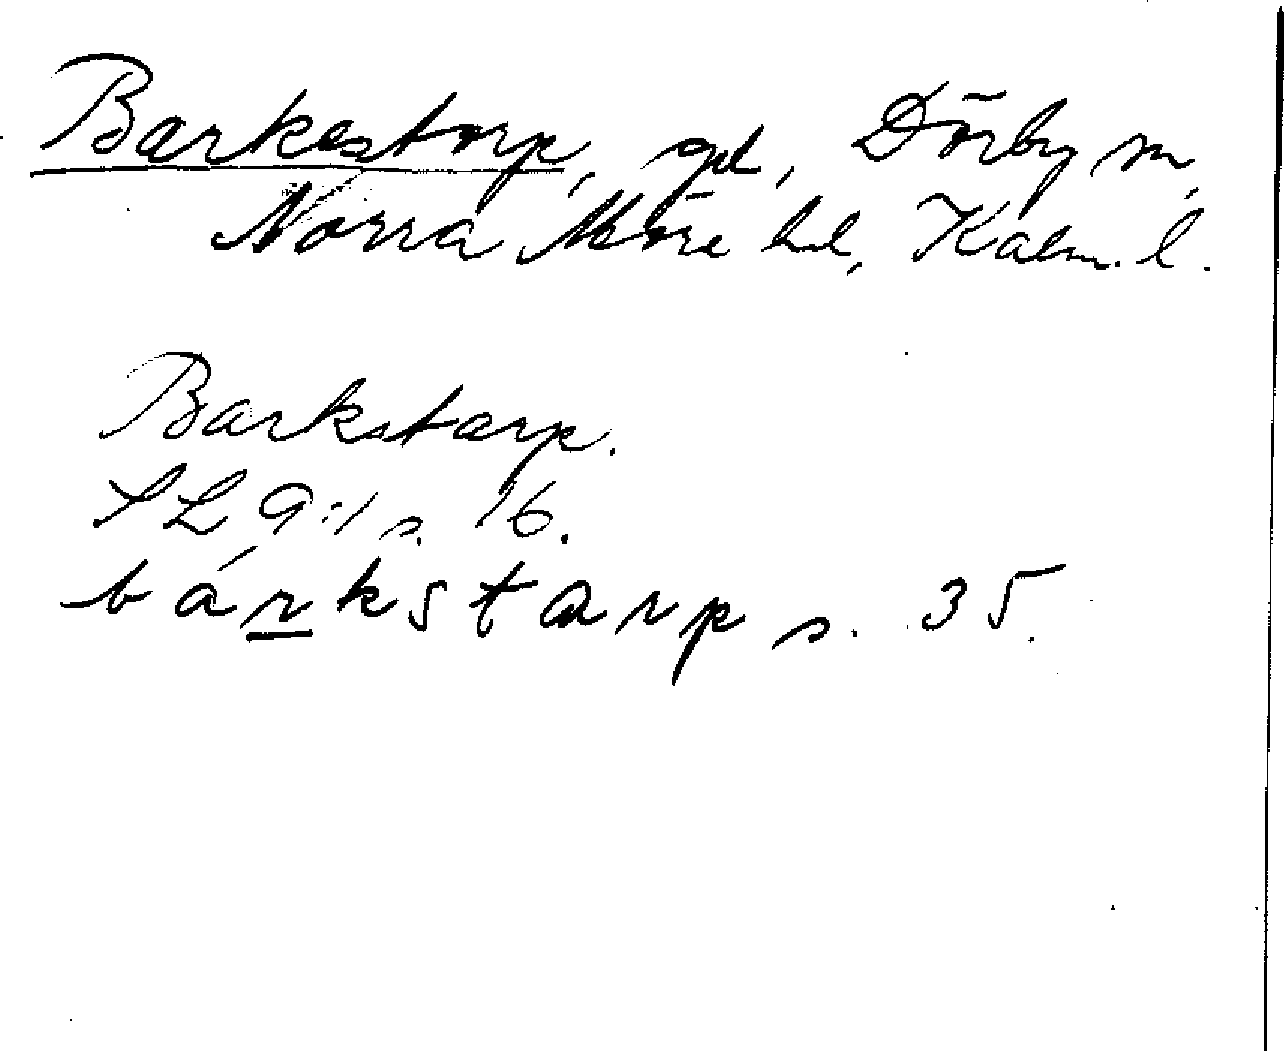 Barkestorp, gd, Dörby sn,
Norra Möre hd, Kalm. l.
Barkstorp.
SL 9:1 s. 16.
bárkstarp s. 35.